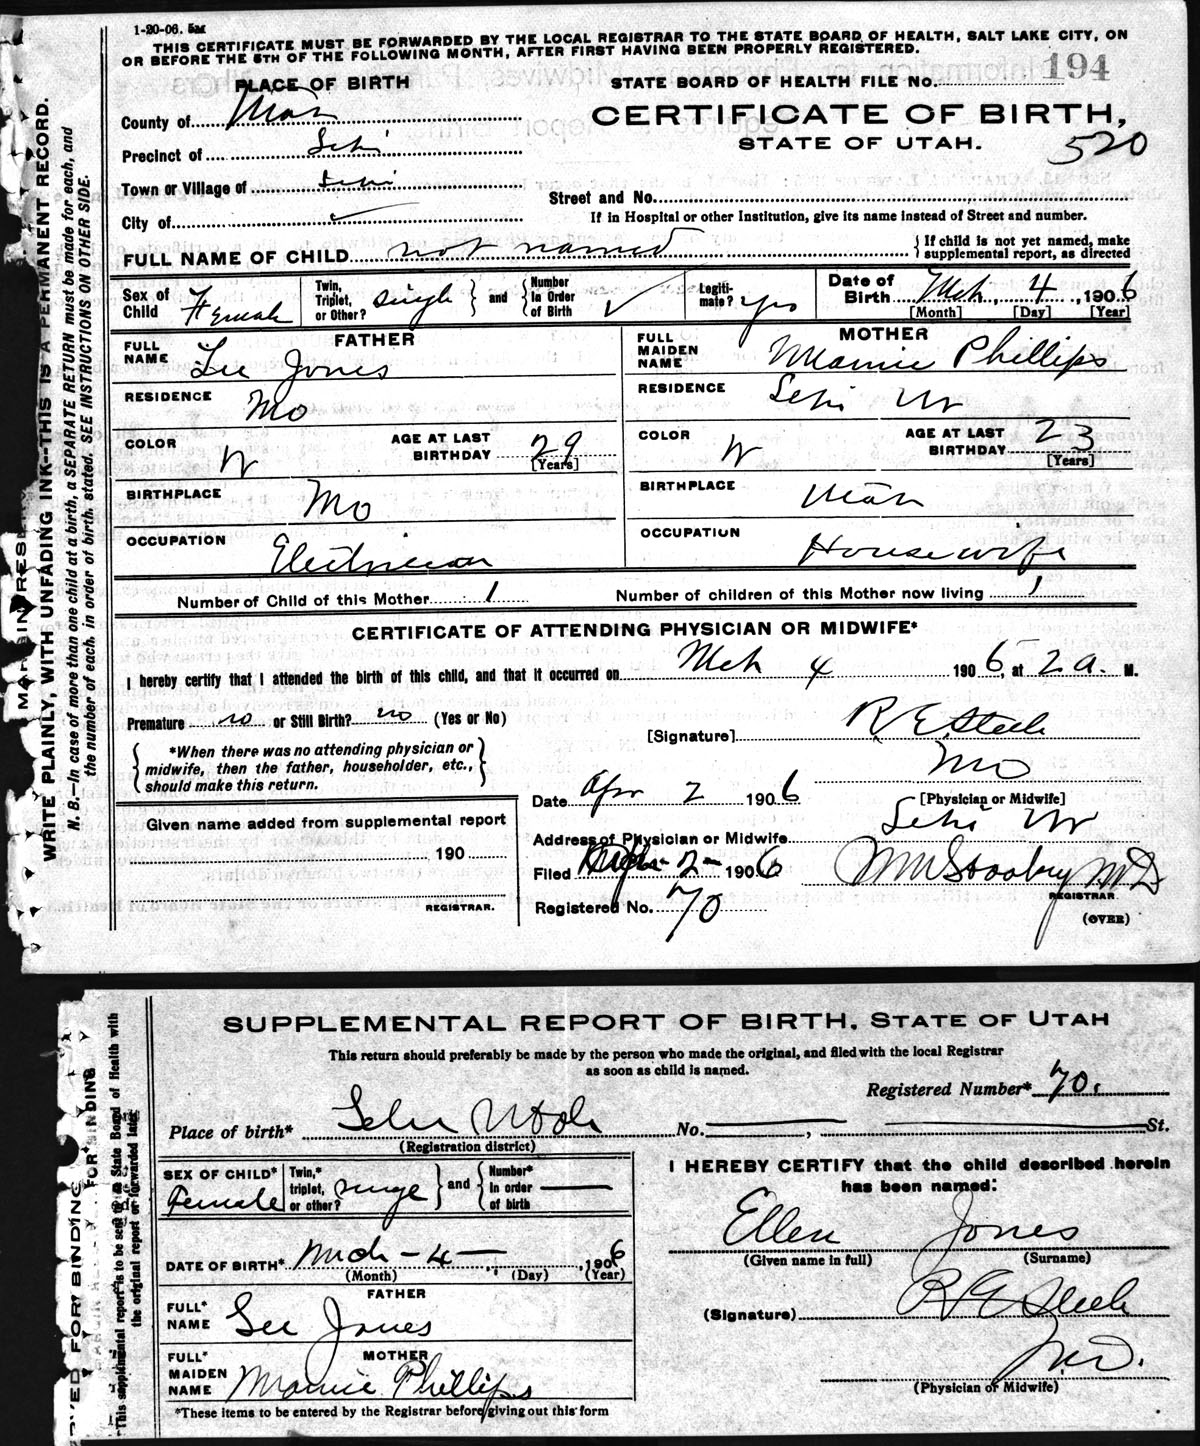 1-20-06. 5M
THIS CERTIFICATE MUST BE FORWARDED BY THE LOCAL REGISTRAR TO THE STATE BOARD OF HEALTH, SALT LAKE CITY, ON
OR BEFORE THE 5TH OF THE FOLLOWING MONTH, AFTER FIRST HAVING BEEN PROPERLY REGISTERED.
PLACE OF BIRTH
STATE BOARD OF HEALTH FILE NO. 194
County of Utah
CERTIFICATE OF BIRTH,
Precinct of Lehi
STATE OF UTAH.
520
Town or Village of Lehi
Street and No.
City of
If in Hospital or other Institution, give its name instead of Street and number.
FULL NAME OF CHILD not named
If child is not yet named, make
supplemental report, as directed
Sex of Child Female
Twin, Triplet, or Other? single and Number In Order of Birth
Legitimate? yes
Date of Birth Mch 4, 1906
[Month] [Day] [Year]
FATHER
MOTHER
FULL NAME Lee Jones
FULL MAIDEN NAME Mamie Phillips
RESIDENCE Mo
RESIDENCE Lehi Ut
COLOR W AGE AT LAST BIRTHDAY 29 [Years]
COLOR W AGE AT LAST BIRTHDAY 23 [Years]
BIRTHPLACE Mo
BIRTHPLACE Utah
OCCUPATION Electrician
OCCUPATION Housewife
Number of Child of this Mother 1 Number of children of this Mother now living 1
CERTIFICATE OF ATTENDING PHYSICIAN OR MIDWIFE*
I hereby certify that I attended the birth of this child, and that it occurred on Mch 4 1906, at 2 a. M.
Premature no or Still Birth? no (Yes or No)
[Signature] R E Steele
MD
*When there was no attending physician or
midwife, then the father, householder, etc.,
should make this return.
Date Apr 2 1906
[Physician or Midwife]
Given name added from supplemental report
Address of Physician or Midwife Lehi Ut
190
Filed 2- 1906
REGISTRAR.
Registered No. 70
MD
REGISTRAR
(OVER)
WRITE PLAINLY, WITH UNFADING INK--THIS IS A PERMANENT RECORD.
N. B.—In case of more than one child at a birth, a SEPARATE RETURN must be made for each, and
the number of each, in order of birth, stated. SEE INSTRUCTIONS ON OTHER SIDE.
SUPPLEMENTAL REPORT OF BIRTH. STATE OF UTAH
This return should preferably be made by the person who made the original, and filed with the local Registrar
as soon as child is named.
Registered Number* 70
Place of birth* Lehi Utah No. , St.
(Registration district)
SEX OF CHILD* Female
Twin,* triplet, or other? single and Number* in order of birth
I HEREBY CERTIFY that the child described herein
has been named:
Ellen Jones
(Given name in full) (Surname)
DATE OF BIRTH* Mch - 4 - 1906
(Month) (Day) (Year)
FATHER
FULL* NAME Lee Jones
(Signature) R E Steele
M.D.
MOTHER
FULL* MAIDEN NAME Mamie Phillips
(Physician or Midwife)
*These items to be entered by the Registrar before giving out this form
FOR BINDING
This supplemental report is to be sent to State Board of Health with
the original report or forwarded later.